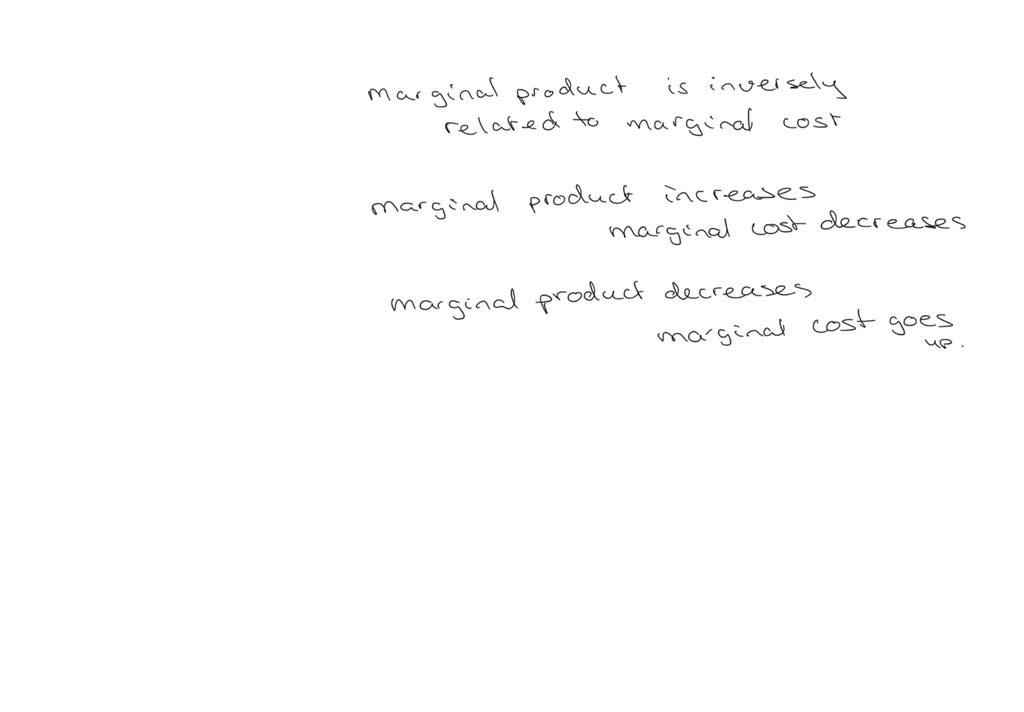 marginal product is inversely
related to marginal cost
marginal product increases
marginal cost decreases
marginal product decreases
marginal cost goes
up.